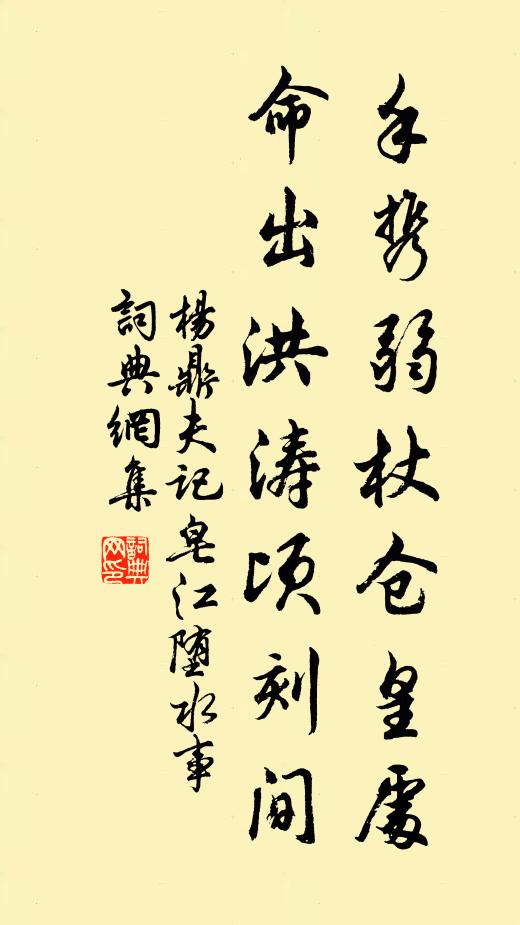 手携弱杖仓皇處
命出洪涛頃刻间
楊鼎夫记皂江堕水事
詞典網集
詞典网印